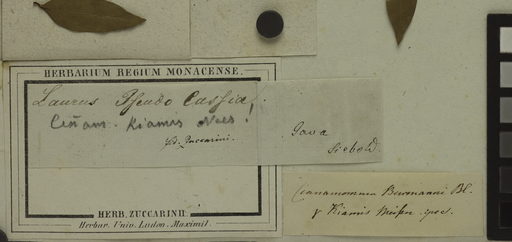 HERBARIUM REGIUM MONACENSE.
Laurus Pseudo Cassia!
Cin̄am. Kiamis Nees.
Zuccarini.
Java
Siebold.
HERB. ZUCCARINII.
Herbar. Univ. Ludov. Maximil.
Cinnamomum Burmanni Bl.
γ Kiamis Meisn.